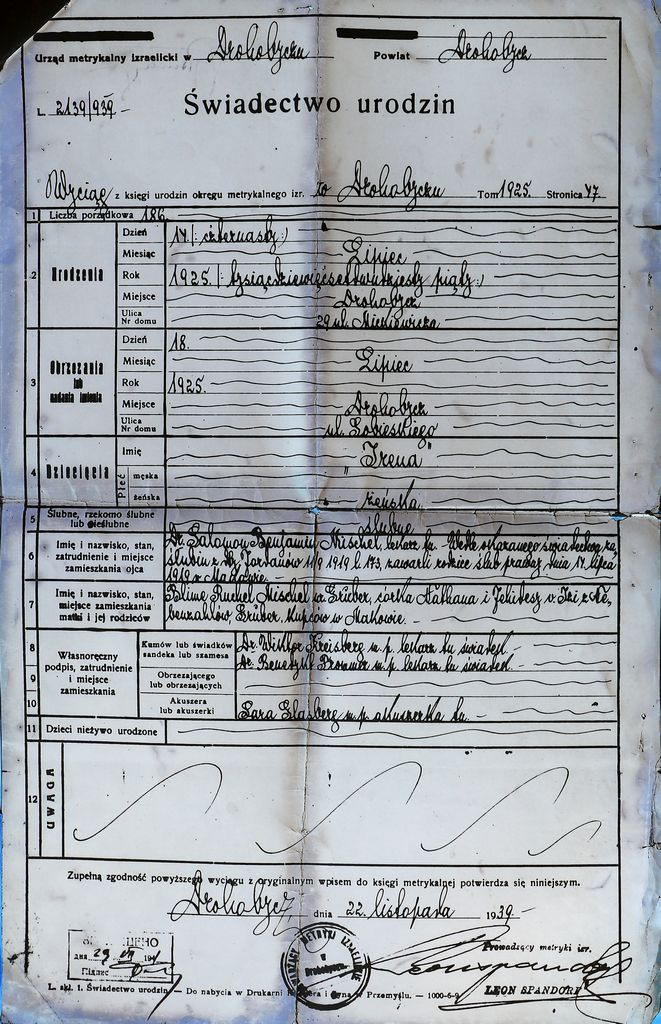 Urząd metrykalny izraelicki w Drohobyczu Powiat Drohobycz
L. 2139/939 -
Świadectwo urodzin
Wyciąg z księgi urodzin okręgu metrykalnego izr. w Drohobyczu Tom 1925. Stronica 47
1 Liczba porządkowa 186.
2 Urodzenia
Dzień 14 /: czternasty :/
Miesiąc Lipiec
Rok 1925. /: tysiącdziewięćsetdwudziesty piąty :/
Miejsce Drohobycz
Ulica Nr domu 29 ul. Mickiewicza
3 Obrzezania lub nadania imienia
Dzień 18.
Miesiąc Lipiec
Rok 1925.
Miejsce Drohobycz
Ulica Nr domu ul. Sobieskiego
4 Dziecięcia
Imię "Irena"
Płeć męska
żeńska żeńska
5 Ślubne, rzekomo ślubne
lub nieślubne ślubne
6 Imię i nazwisko, stan,
zatrudnienie i miejsce
zamieszkania ojca
Dr. Salomon Benjamin Mischel, lekarz tu. - Wedle okazanego świadectwa za-
ślubin z Jordanów 11/9 1919 l. 173, zawarli rodzice ślub prawny dnia 17 lipca
1919 w Makowie. -
7 Imię i nazwisko, stan,
miejsce zamieszkania
matki i jej rodziców
Blime Ruchel Mischel Gruber, córka Nathana i
Gruber, kupców w Makowie. -
Własnoręczny
podpis, zatrudnienie
i miejsce
zamieszkania
8 Kumów lub świadków
sandeka lub szamesa
Dr. Wiktor Kreisberg m. p. lekarz tu świadek. -
Dr. m. p. lekarz tu świadek. -
9 Obrzezającego
lub obrzezających
10 Akuszera
lub akuszerki
Sara Glasberg m. p. akuszerka tu. -
11 Dzieci nieżywo urodzone
12 UWAGA
Zupełną zgodność powyższego wyciągu z oryginalnym wpisem do księgi metrykalnej potwierdza się niniejszym.
Drohobycz dnia 22. listopada 1939 -
Prowadzący metryki izr.
LEON SPANDORF
URZĘDZIE METRYK IZRAELICKIE
w Drohobyczu
29
L. skł. 1. Świadectwo urodzin — Do nabycia w Drukarni i Syna w Przemyślu. — 1000-6-9